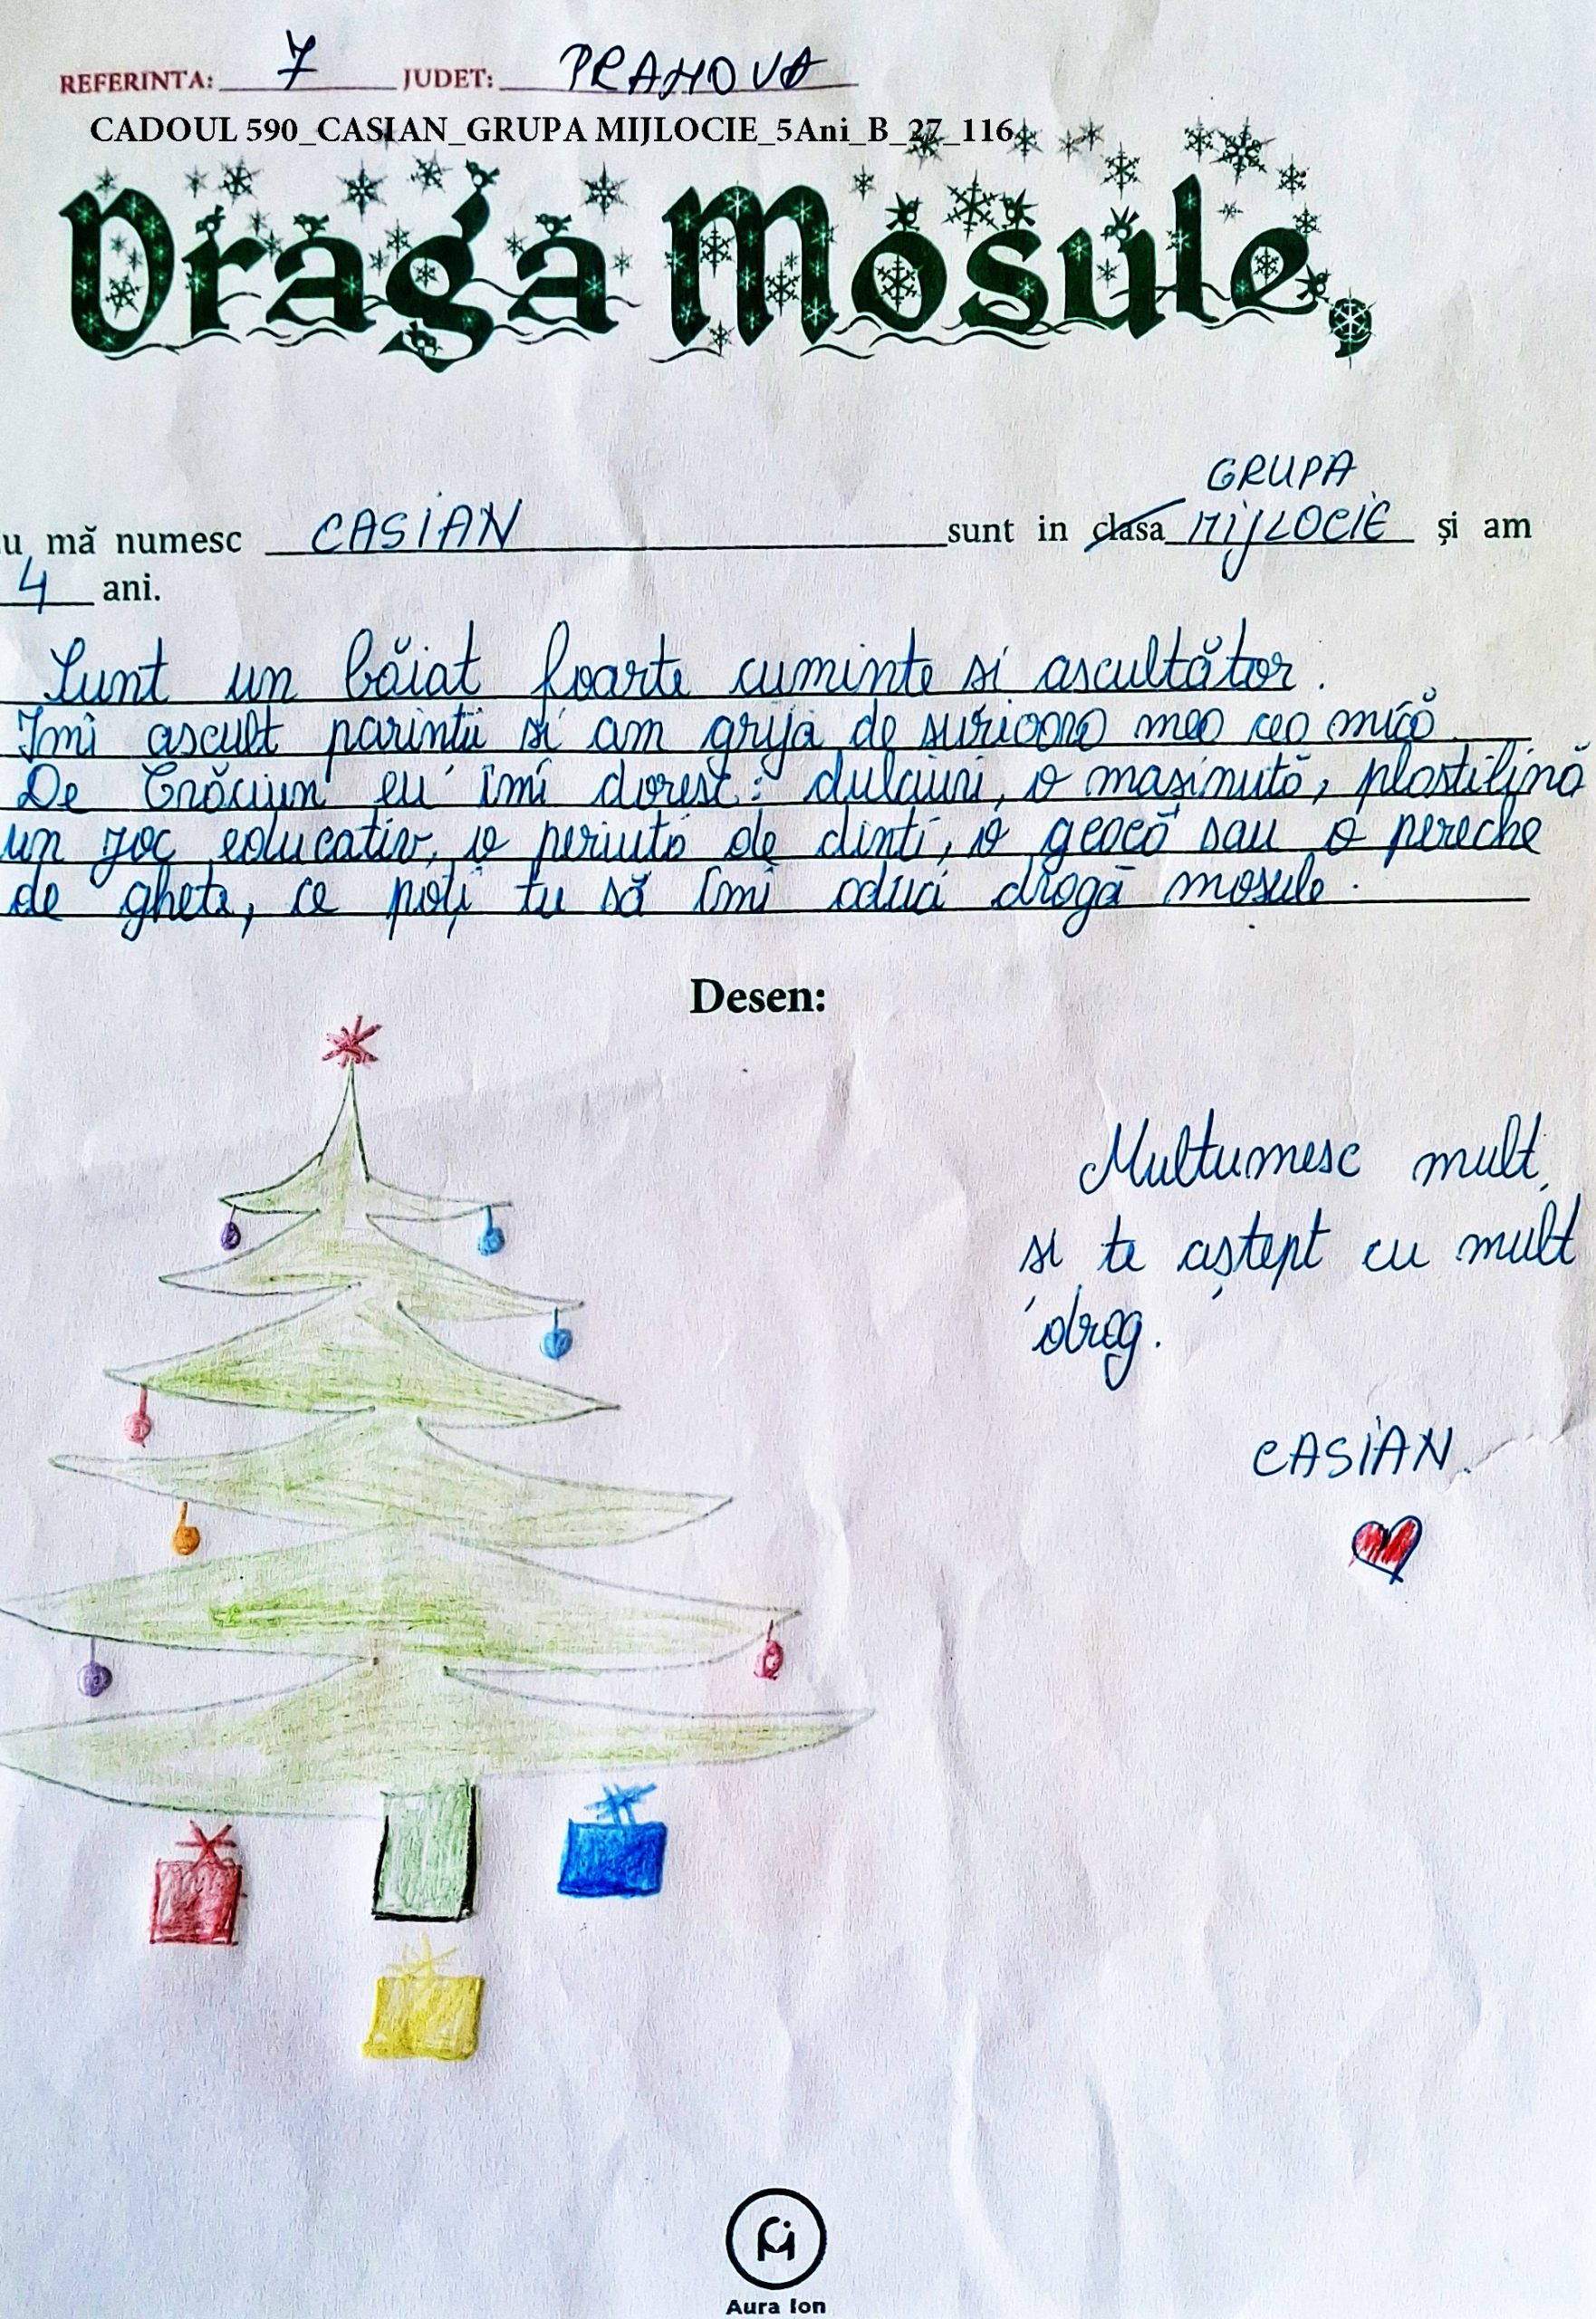 REFERINTA: 7 JUDET: PRAHOVA
CADOUL 590_CASIAN_GRUPA MIJLOCIE_5Ani_B_27_116
Draga Mosule,
GRUPA
u mă numesc CASIAN sunt in clasa MIJLOCIE și am
4 ani.
Sunt un băiat foarte cuminte si ascultător.
Imi ascult parintii si am grija de surioara mea cea mică.
De Crăciun eu îmi doresc: dulciuri, o mașinută, plastilină
un joc educativ, o periuta de dinti, o geacă sau o pereche
de ghete, ce poți tu să îmi aduci dragă mosule.
Desen:
Multumesc mult,
si te aștept cu mult
drag.
CASIAN.
Aura Ion